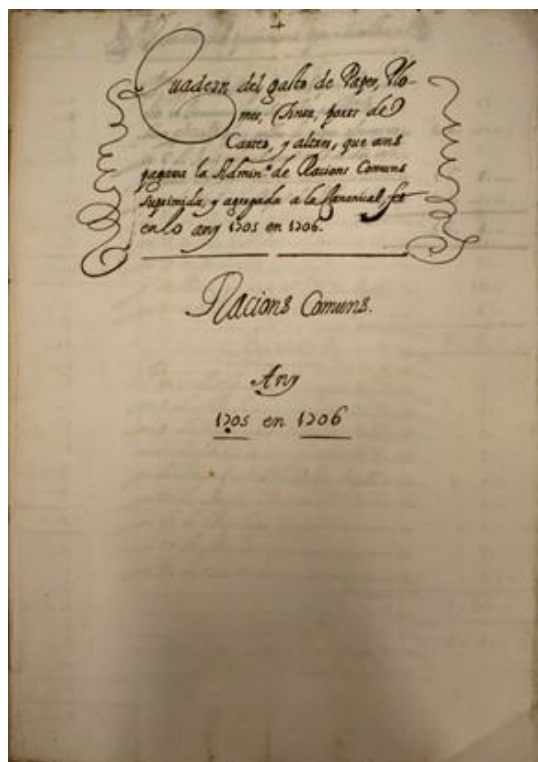 Quadern del gasto de Paper, Plo-
mes, Tinta, ports de
Cartes, y altres, que ans
pagava la Admin.º de Racions Comuns
suprimida, y agregada a la Canonical, fet
en lo any 1705 en 1706.
Racions Comuns.
Any
1705 en 1706